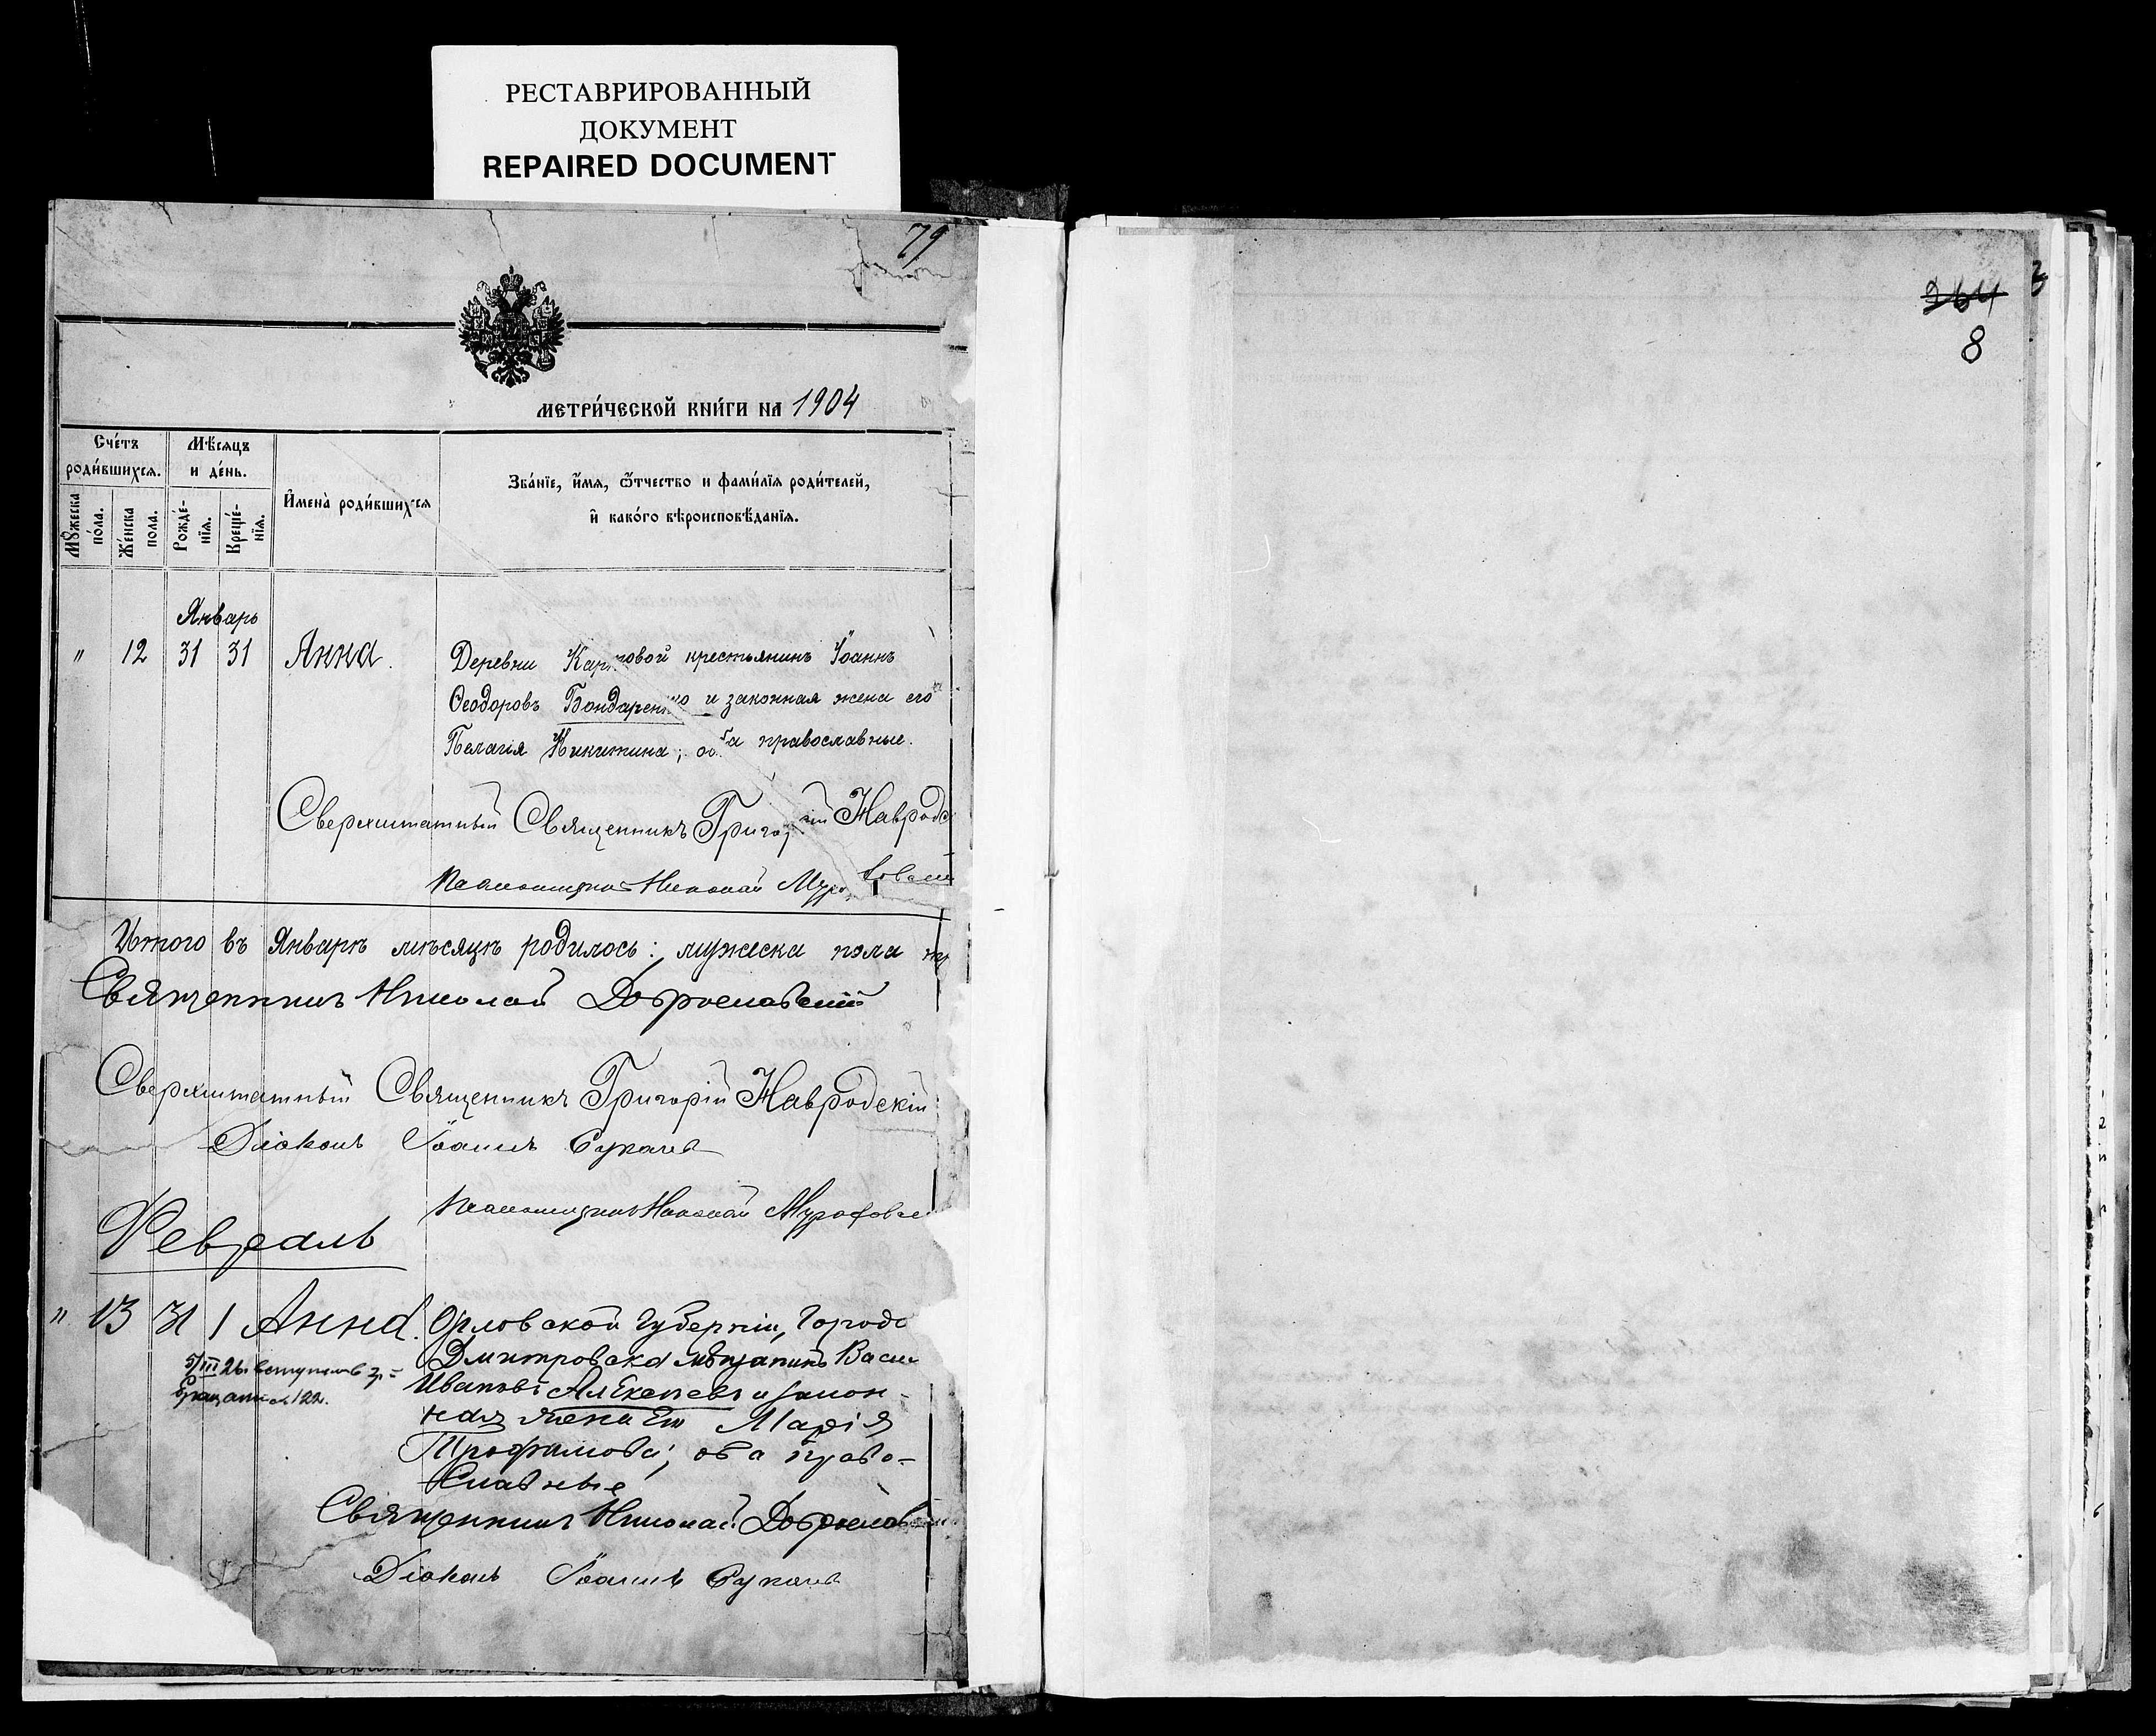 РЕСТАВРИРОВАННЫЙ
ДОКУМЕНТ
REPAIRED DOCUMENT
79
МЕТРИ́ЧЕСКОЙ КНИ́ГИ НА 1904
Сче́тъ роди́вшихся.
Мѣ́сяцъ и де́нь.
Мꙋ́жеска по́ла.
Же́нска пола.
Рожде́-нїя.
Креще́-нїя.
И҆мена̀ роди́вшихся
Зва́нїе, и҆́мя, ѻ҆́тчество и фами́лїя роди́телей,
и҆ како́го вѣроисповѣ́данїя.
Январь
" 12 31 31 Анна. Деревни Карповой крестьянинъ Іоаннъ
Ѳеодоровъ Бондаренко и законная жена его
Пелагія Никитина; оба православные.
Сверхштатный Священникъ Григорій Навродс
Псаломщикъ Николай
Итого въ Январѣ мѣсяцѣ родилось: мужеска пола
Священникъ Николай Доброславскій
Сверхштатный Священникъ Григорій Навродскій
Діаконъ Іоаннъ
Псаломщикъ Николай
Февраль
" 13 31 1 Анна. Орловской Губерніи, Города
Дмитровска мѣщанинъ Васи
Ивановъ Алексеевъ и закон-
ная жена Его Марія
Трофимова; оба право-
славные
5/III 26г. вступила в
№ 122.
Священникъ Николай Доброславскій
Діаконъ Іоаннъ
264
3
8